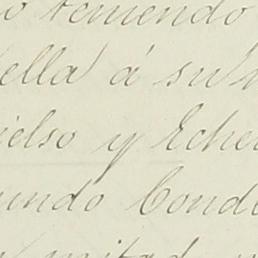 teniendo
ella á su
elso y Eche
undo Cond
mitad